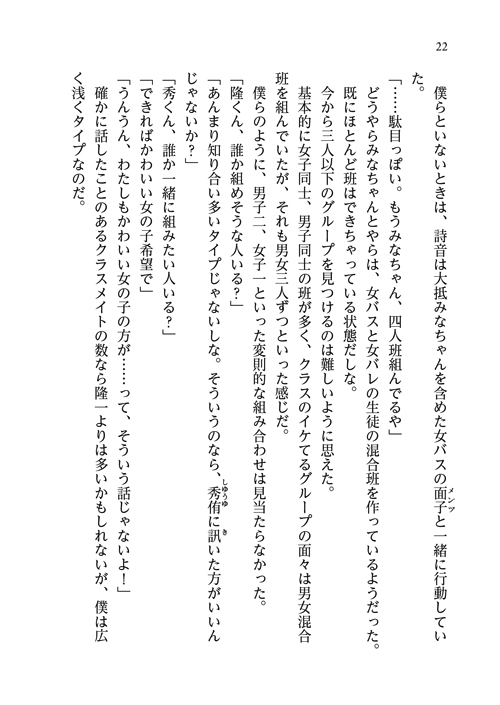 22
僕らといないときは、詩音は大抵みなちゃんを含めた女バスの面子と一緒に行動してい
メンツ
た。
「……駄目っぽい。もうみなちゃん、四人班組んでるや」
どうやらみなちゃんとやらは、女バスと女バレの生徒の混合班を作っているようだった。
既にほとんど班はできちゃっている状態だしな。
今から三人以下のグループを見つけるのは難しいように思えた。
基本的に女子同士、男子同士の班が多く、クラスのイケてるグループの面々は男女混合
班を組んでいたが、それも男女三人ずつといった感じだ。
僕らのように、男子二、女子一といった変則的な組み合わせは見当たらなかった。
「隆くん、誰か組めそうな人いる？」
「あんまり知り合い多いタイプじゃないしな。そういうのなら、秀侑に訊いた方がいいん
しゅうゆ
き
じゃないか？」
「秀くん、誰か一緒に組みたい人いる？」
「できればかわいい女の子希望で」
「うんうん、わたしもかわいい女の子の方が……って、そういう話じゃないよ！」
確かに話したことのあるクラスメイトの数なら隆一よりは多いかもしれないが、僕は広
く浅くタイプなのだ。